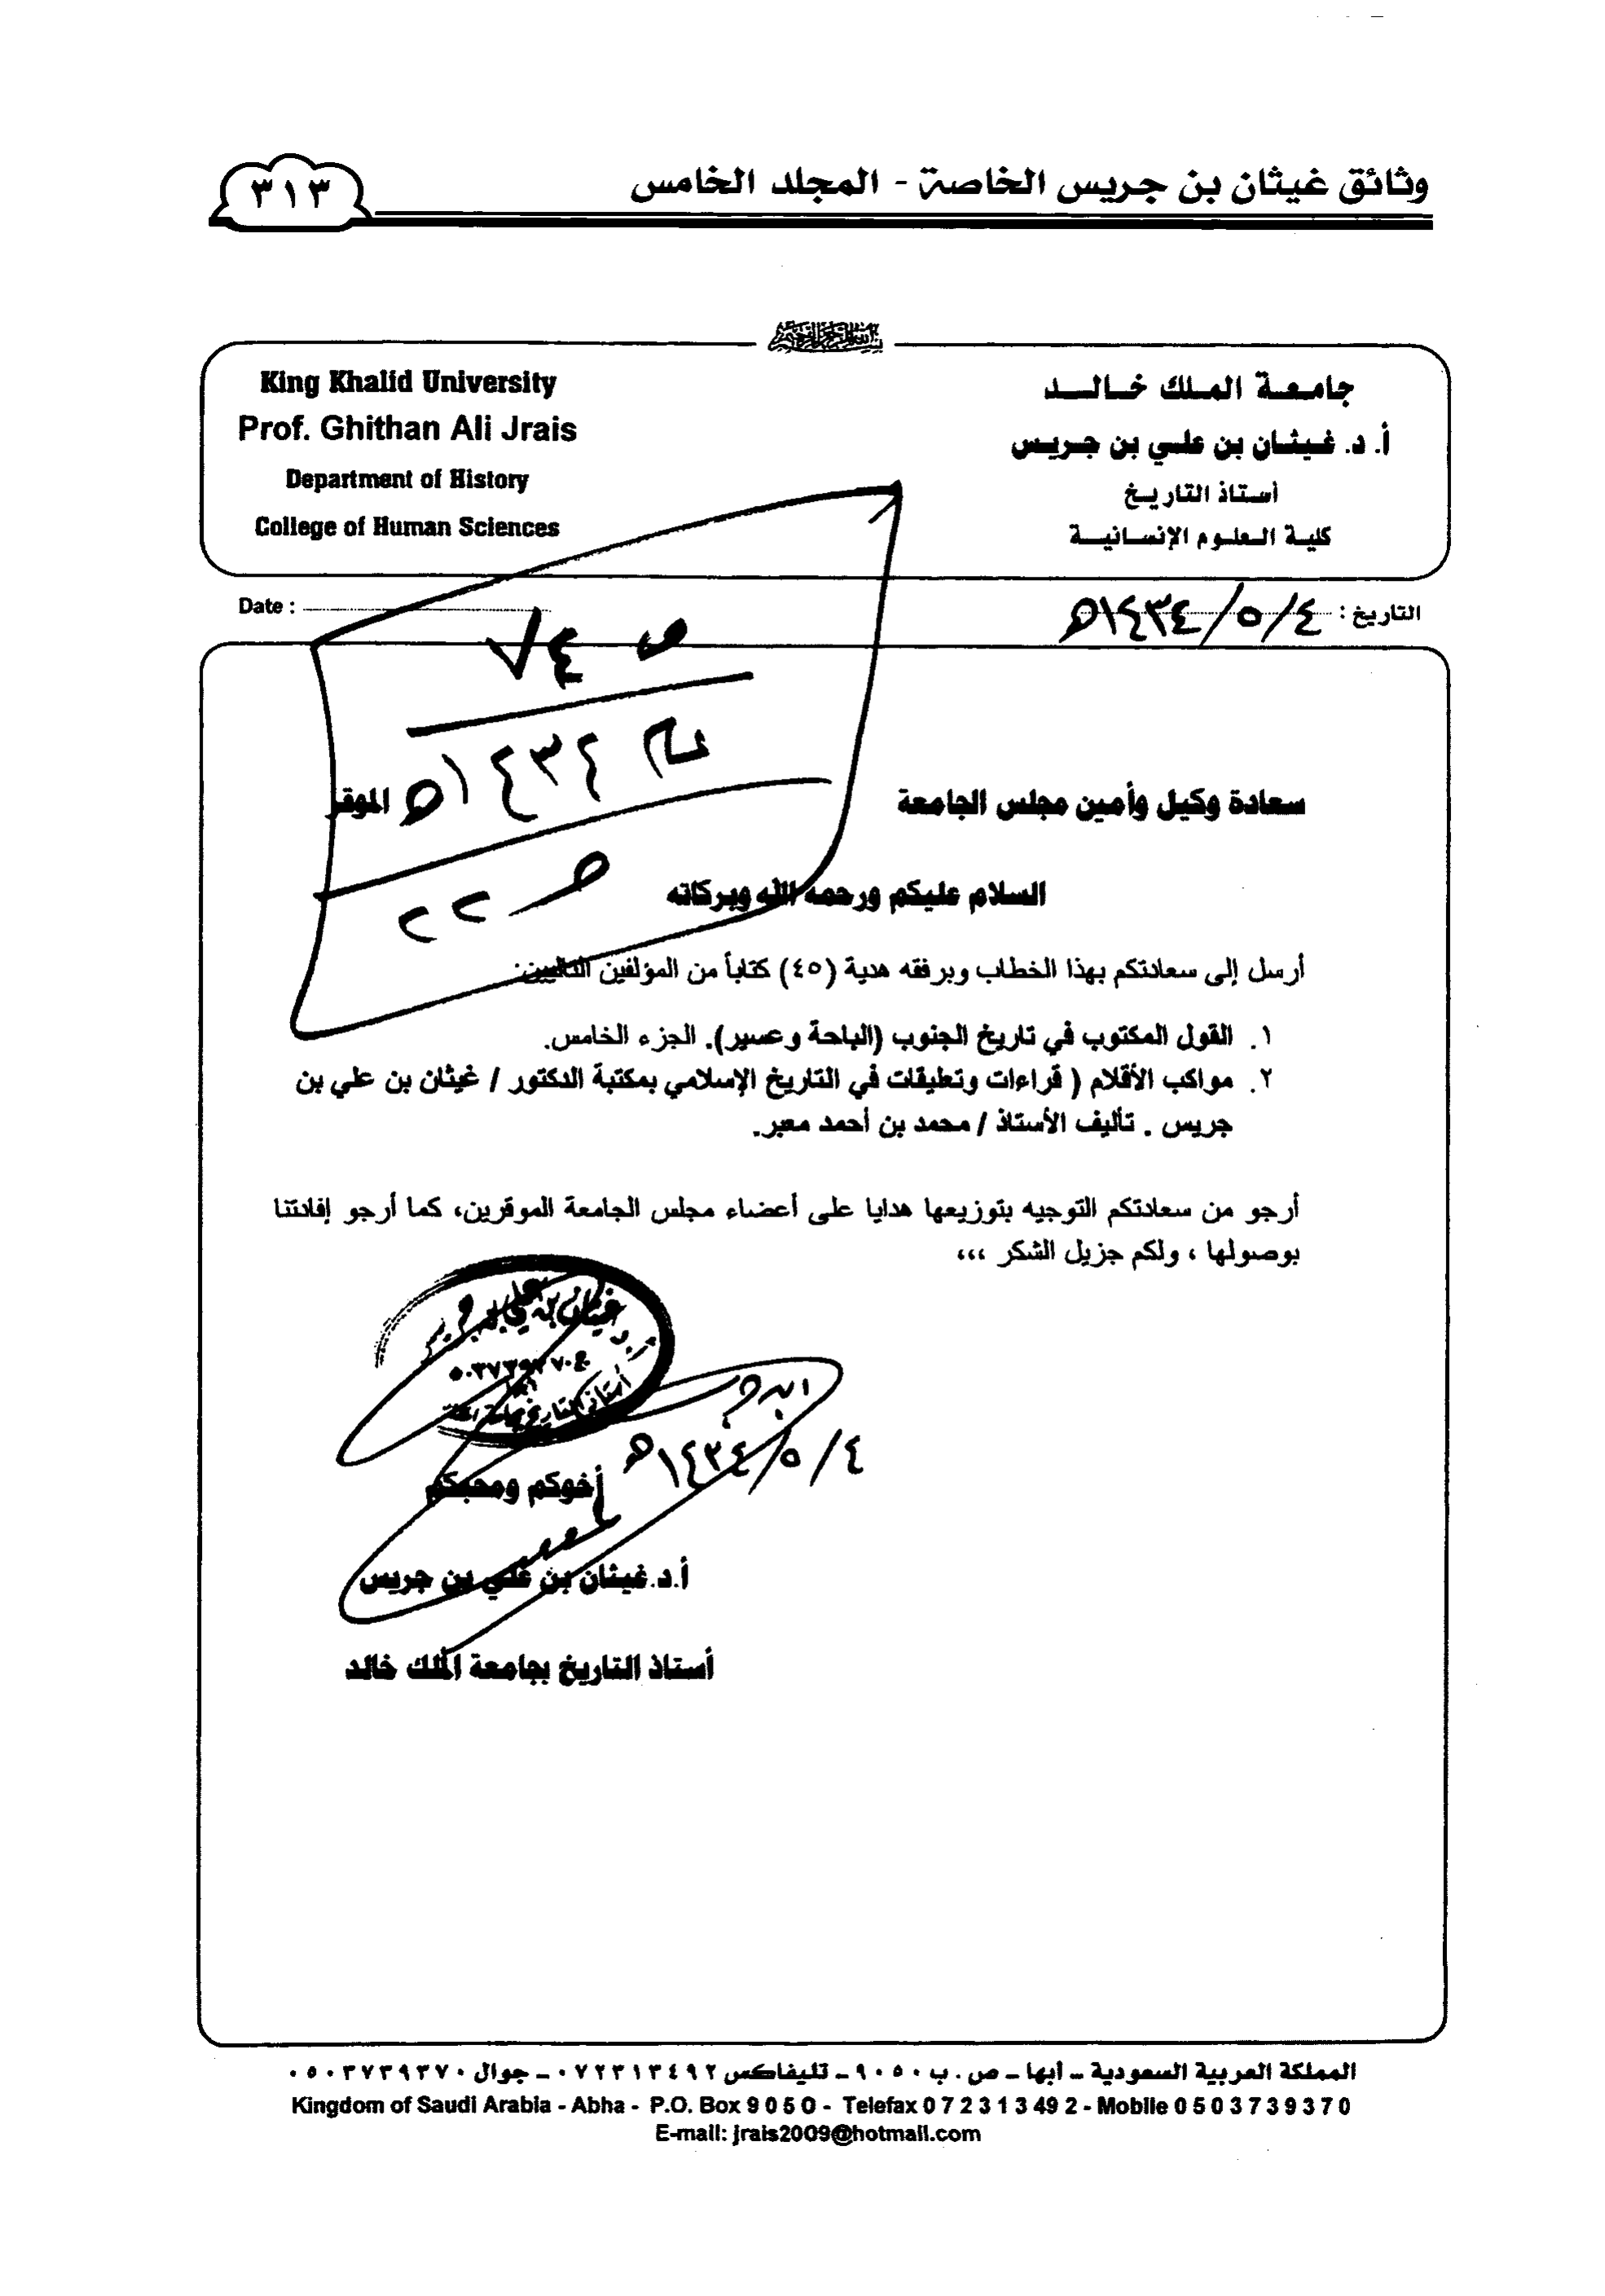 وثائق غيثان بن جريس الخاصة - المجلد الخامس
٣١٣
جامعة الملك خالد
أ. د. غيثان بن علي بن جريس
أستاذ التاريخ
كلية العلوم الإنسانية
King Khalid University
Prof. Ghithan Ali Jrais
Department of History
College of Human Sciences
التاريخ : ٤/٥/١٤٣٤ه
Date :
عام ١٤٣٤ه
سعادة وكيل وأمين مجلس الجامعة الموقر
السلام عليكم ورحمه الله وبركاته
أرسل إلى سعادتكم بهذا الخطاب وبرفقه هدية (٤٥) كتاباً من المؤلفين التاليين:
١. القول المكتوب في تاريخ الجنوب (الباحة وعسير). الجزء الخامس.
٢. مواكب الأقلام ( قراءات وتعليقات في التاريخ الإسلامي بمكتبة الدكتور / غيثان بن علي بن
جريس . تأليف الأستاذ / محمد بن أحمد معبر.
أرجو من سعادتكم التوجيه بتوزيعها هدايا على أعضاء مجلس الجامعة الموقرين، كما أرجو إفادتنا
بوصولها ، ولكم جزيل الشكر ،،،
٤/٥/١٤٣٤ه
أخوكم ومحبكم
أ.د.غيثان بن علي بن جريس
أستاذ التاريخ بجامعة الملك خالد
المملكة العربية السعودية - أبها - ص . ب ٩٠٥٠ - تليفاكس ٠٧٢٣١٣٤٩٢ - جوال ٠٥٠٣٧٣٩٣٧٠
Kingdom of Saudi Arabia - Abha - P.O. Box 9 0 5 0 - Telefax 0 7 2 3 1 3 49 2 - Mobile 0 5 0 3 7 3 9 3 7 0
E-mail: jrais2009@hotmail.com